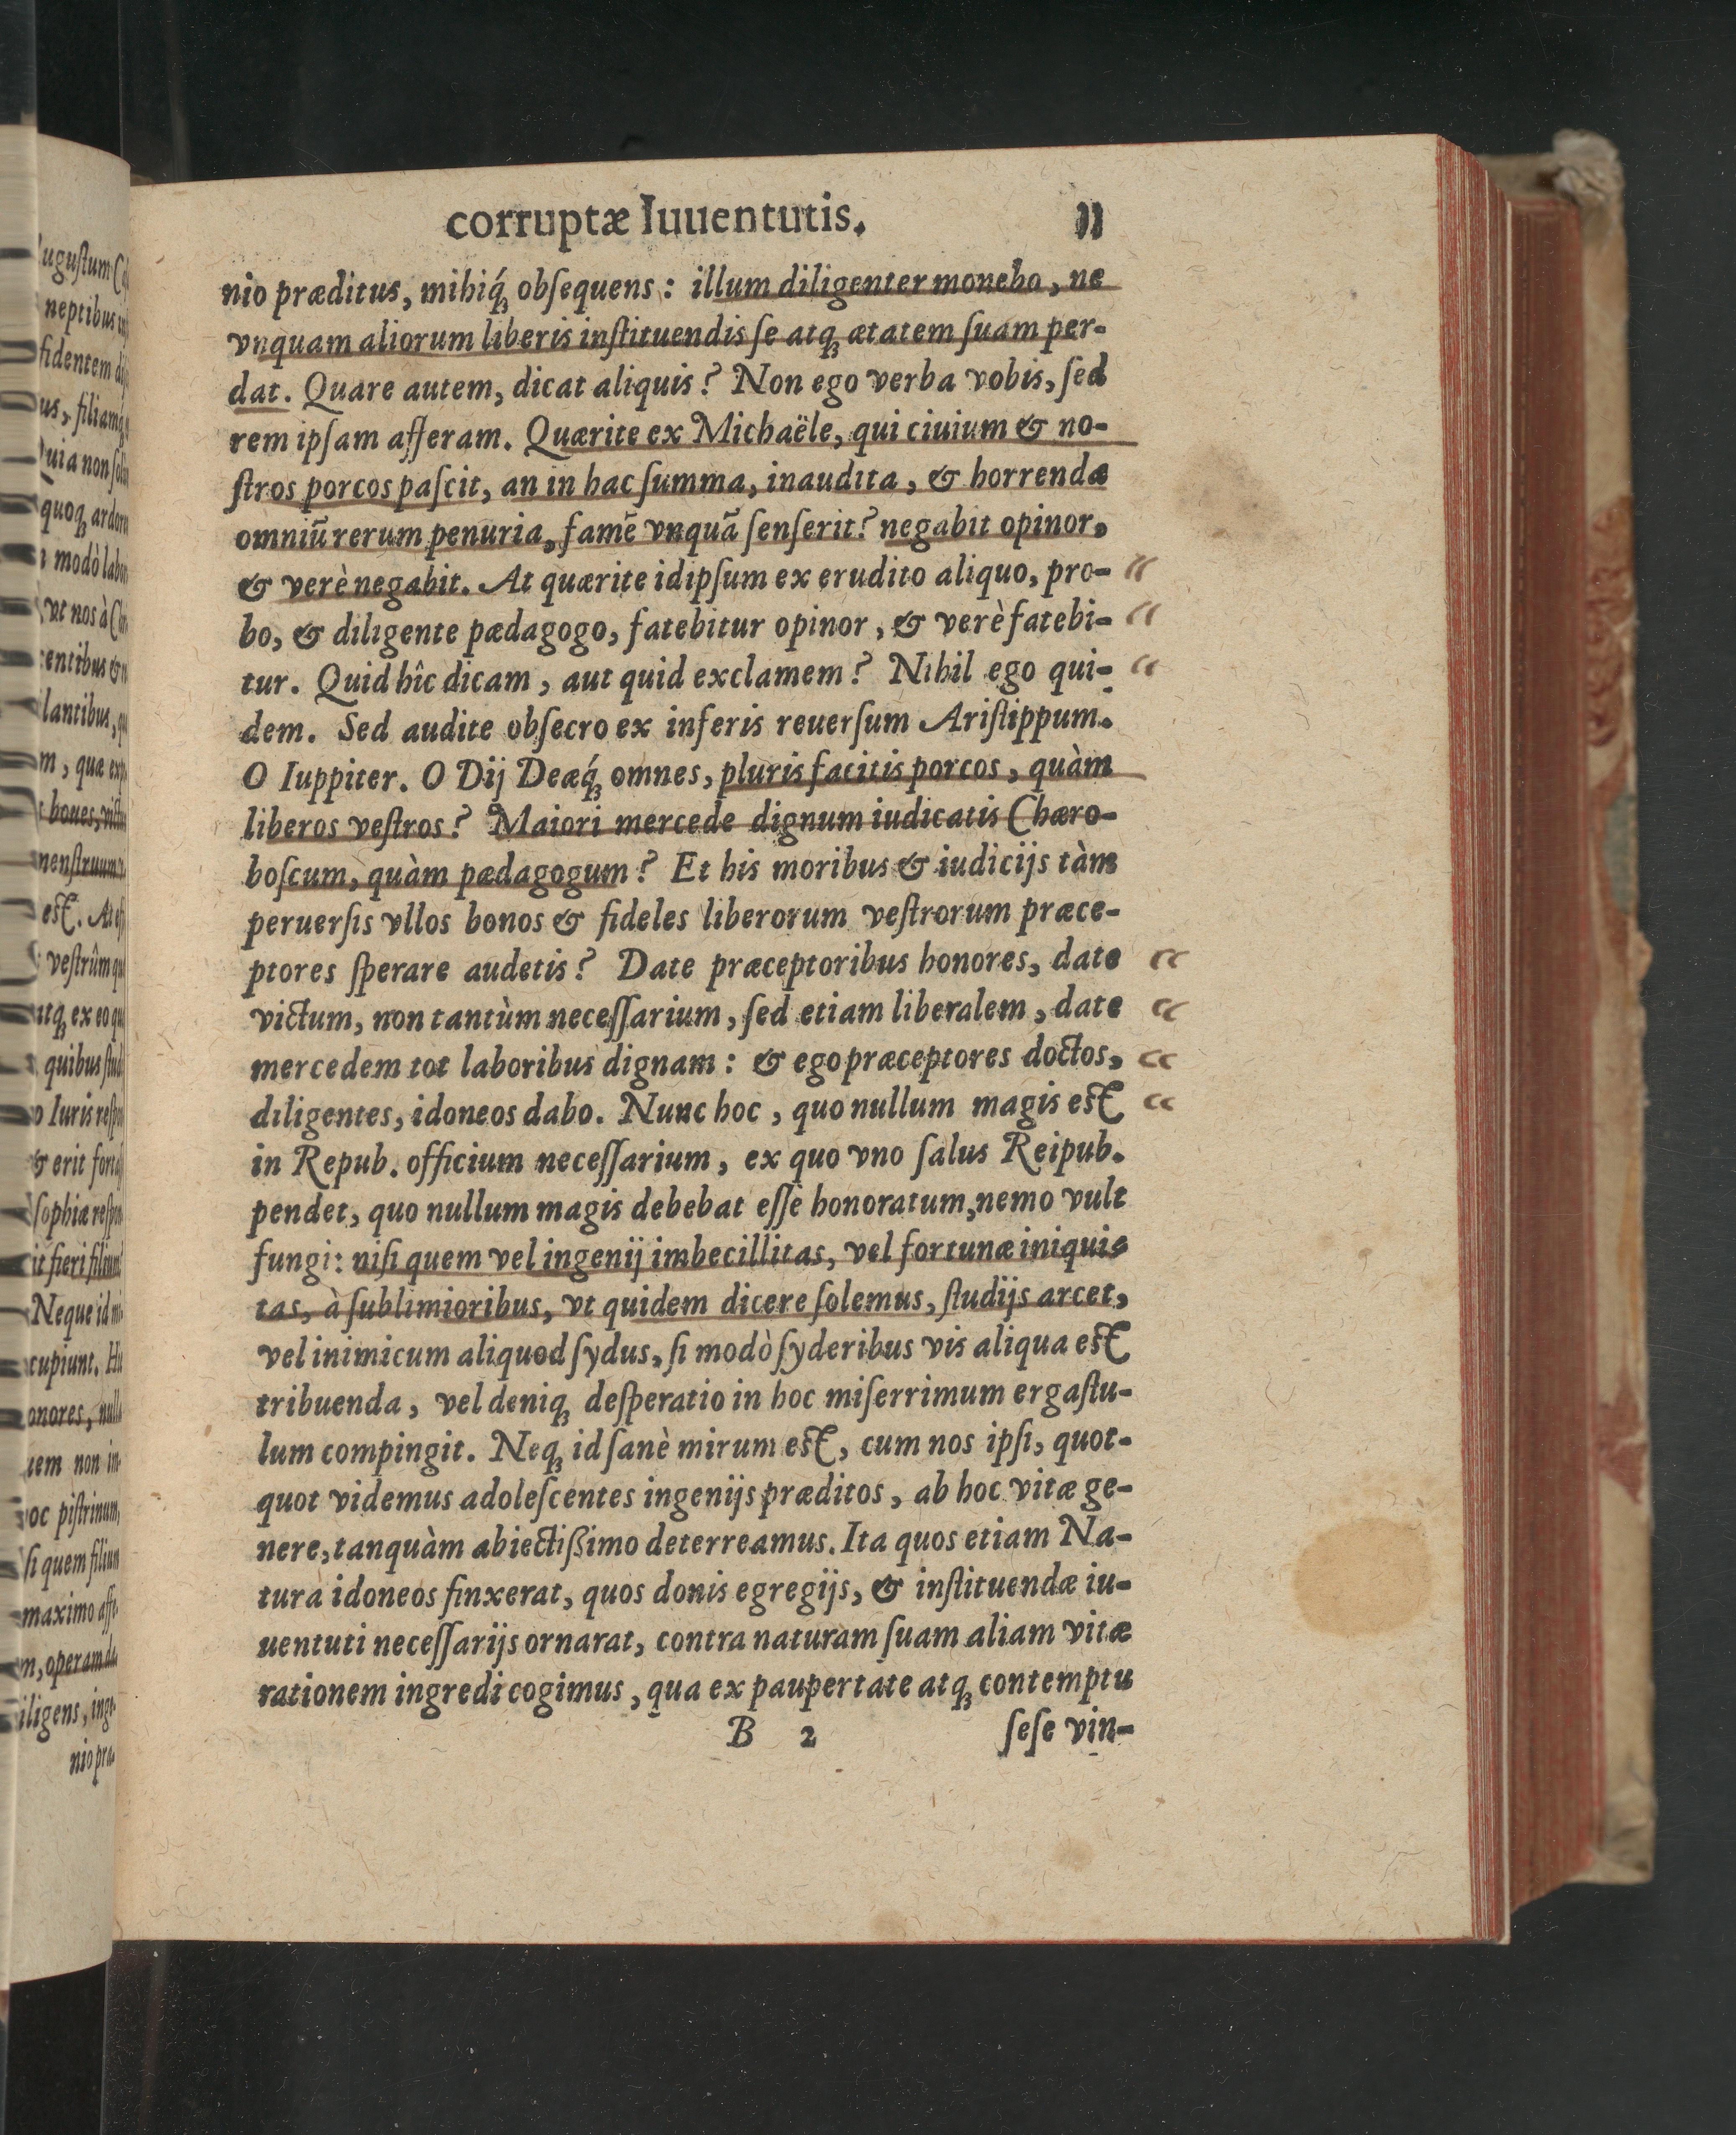 corruptæ Iuuentutis. 11
nio præditus, mihiq́ꝫ obſequens: illum diligenter monebo, ne
vnquam aliorum liberis inſtituendis ſe atqꝫ ætatem ſuam per-
dat. Quare autem, dicat aliquis? Non ego verba vobis, ſed
rem ipſam afferam. Quærite ex Michaële, qui ciuium & no-
ſtros porcos paſcit, an in hac ſumma, inaudita, & horrenda
omniũ rerum penuria, famẽ vnquã ſenſerit? negabit opinor,
& verè negabit. At quærite idipſum ex erudito aliquo, pro-
bo, & diligente pædagogo, fatebitur opinor, & verè fatebi-
tur. Quid hîc dicam, aut quid exclamem? Nihil ego qui-
dem. Sed audite obſecro ex inferis reuerſum Ariſtippum.
O Iuppiter. O Dij Deæq́ꝫ omnes, pluris facitis porcos, quàm
liberos veſtros? Maiori mercede dignum iudicatis Chæro-
boſcum, quàm pædagogum? Et his moribus & iudicijs tàm
peruerſis vllos bonos & fideles liberorum veſtrorum præce-
ptores ſperare audetis? Date præceptoribus honores, date
victum, non tantùm neceſſarium, ſed etiam liberalem, date
mercedem tot laboribus dignam: & ego præceptores doctos,
diligentes, idoneos dabo. Nunc hoc, quo nullum magis eſt
in Repub. officium neceſſarium, ex quo vno ſalus Reipub.
pendet, quo nullum magis debebat eſſe honoratum, nemo vult
fungi: niſi quem vel ingenij imbecillitas, vel fortunæ iniqui-
tas, à ſublimioribus, vt quidem dicere ſolemus, ſtudijs arcet,
vel inimicum aliquod ſydus, ſi modò ſyderibus vis aliqua eſt
tribuenda, vel deniqꝫ deſperatio in hoc miſerrimum ergaſtu-
lum compingit. Neqꝫ id ſanè mirum eſt, cum nos ipſi, quot-
quot videmus adoleſcentes ingenijs præditos, ab hoc vitæ ge-
nere, tanquàm abiectißimo deterreamus. Ita quos etiam Na-
tura idoneos finxerat, quos donis egregijs, & inſtituendæ iu-
uentuti neceſſarijs ornarat, contra naturam ſuam aliam vitæ
rationem ingredi cogimus, qua ex paupertate atqꝫ contemptu
B 2 ſeſe vin-